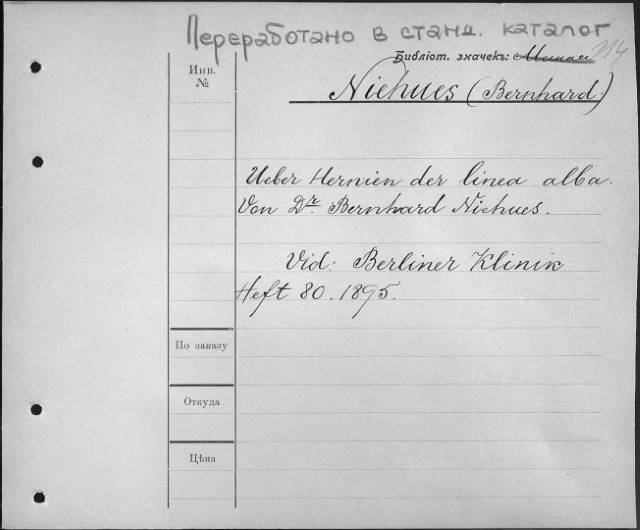 Переработано в станд. каталог
Библіот. значекъ:
114
Инв.
№
Niehues (Bernhard)
Ueber Hernien der linea alba.
Von Dr. Bernhard Niehues.
Vid: Berliner Klinik
Heft 80. 1895.
По заказу
Откуда
Цѣна